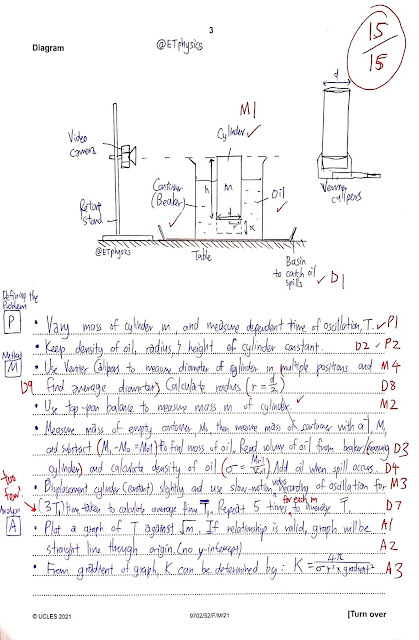 3
Diagram
@ETphysics
15
15
M1
d
Cylinder ✓
Video
camera
Retort
stand
Container
(Beaker)
h
m
d
r
x
Oil
Vernier
callipers
@ETphysics
Table
Basin
to catch oil
spills ✓ D1
Defining the
Problem
P
• Vary mass of cylinder m and measure dependent time of oscillation, T. ✓ P1
• Keep density of oil, radius, & height of cylinder constant. D2 ✓ P2
Method
M
• Use Vernier Callipers to measure diameter of cylinder in multiple positions and M4
D9 find average diameter) Calculate radius (r = d/2) D8
• Use top-pan balance to measure mass m of cylinder. ✓ M2
• Measure mass of empty container M₀ then measure mass of container with oil, M₁
and subtract (M₁ - M₀ = Moil) to find mass of oil. Read volume of oil from beaker/ D3
cylinder) and calculate density of oil (σ = Moil/Voil) Add oil when spill occurs. D4
• Displacement cylinder (constant) slightly and use slow-motion video recording of oscillation for M3
too
few
(3T₁) then taken to calculate average time T₁. Repeat 5 times for each m to average T. D7
Analysis
A
• Plot a graph of T against √m. If relationship is valid, graph will be A1
straight line through origin. (no y-intercept) A2
• From gradient of graph, K can be determined by: K = 4π/σr²×gradient² A3
© UCLES 2021
9702/52/F/M/21
[Turn over